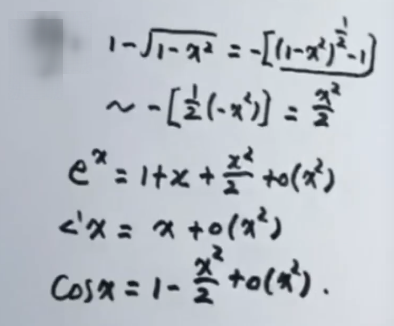 1-√(1-x²) = -[(1-x²)^(1/2)-1]
~ -[1/2(-x²)] = x²/2
eˣ = 1+x+x²/2+o(x²)
x = x+o(x²)
cosx = 1-x²/2+o(x²).